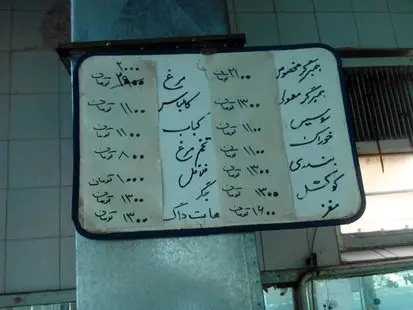 همبرگر مخصوص ۲۱۰۰ تومان
همبرگر معمولی ۱۳۰۰ تومان
سوسیس ۱۱۰۰ تومان
خوراک ۱۱۰۰ تومان
بندری ۱۳۰۰ تومان
کوکتل ۱۳۰۰ تومان
مغز ۱۶۰۰ تومان
مرغ ۲۰۰۰ تومان
کالباس ۱۱۰۰ تومان
کباب ۱۱۰۰ تومان
تخم مرغ ۸۰۰ تومان
فلافل ۱۰۰۰ تومان
جگر ۱۳۰۰ تومان
هات داگ ۱۳۰۰ تومان